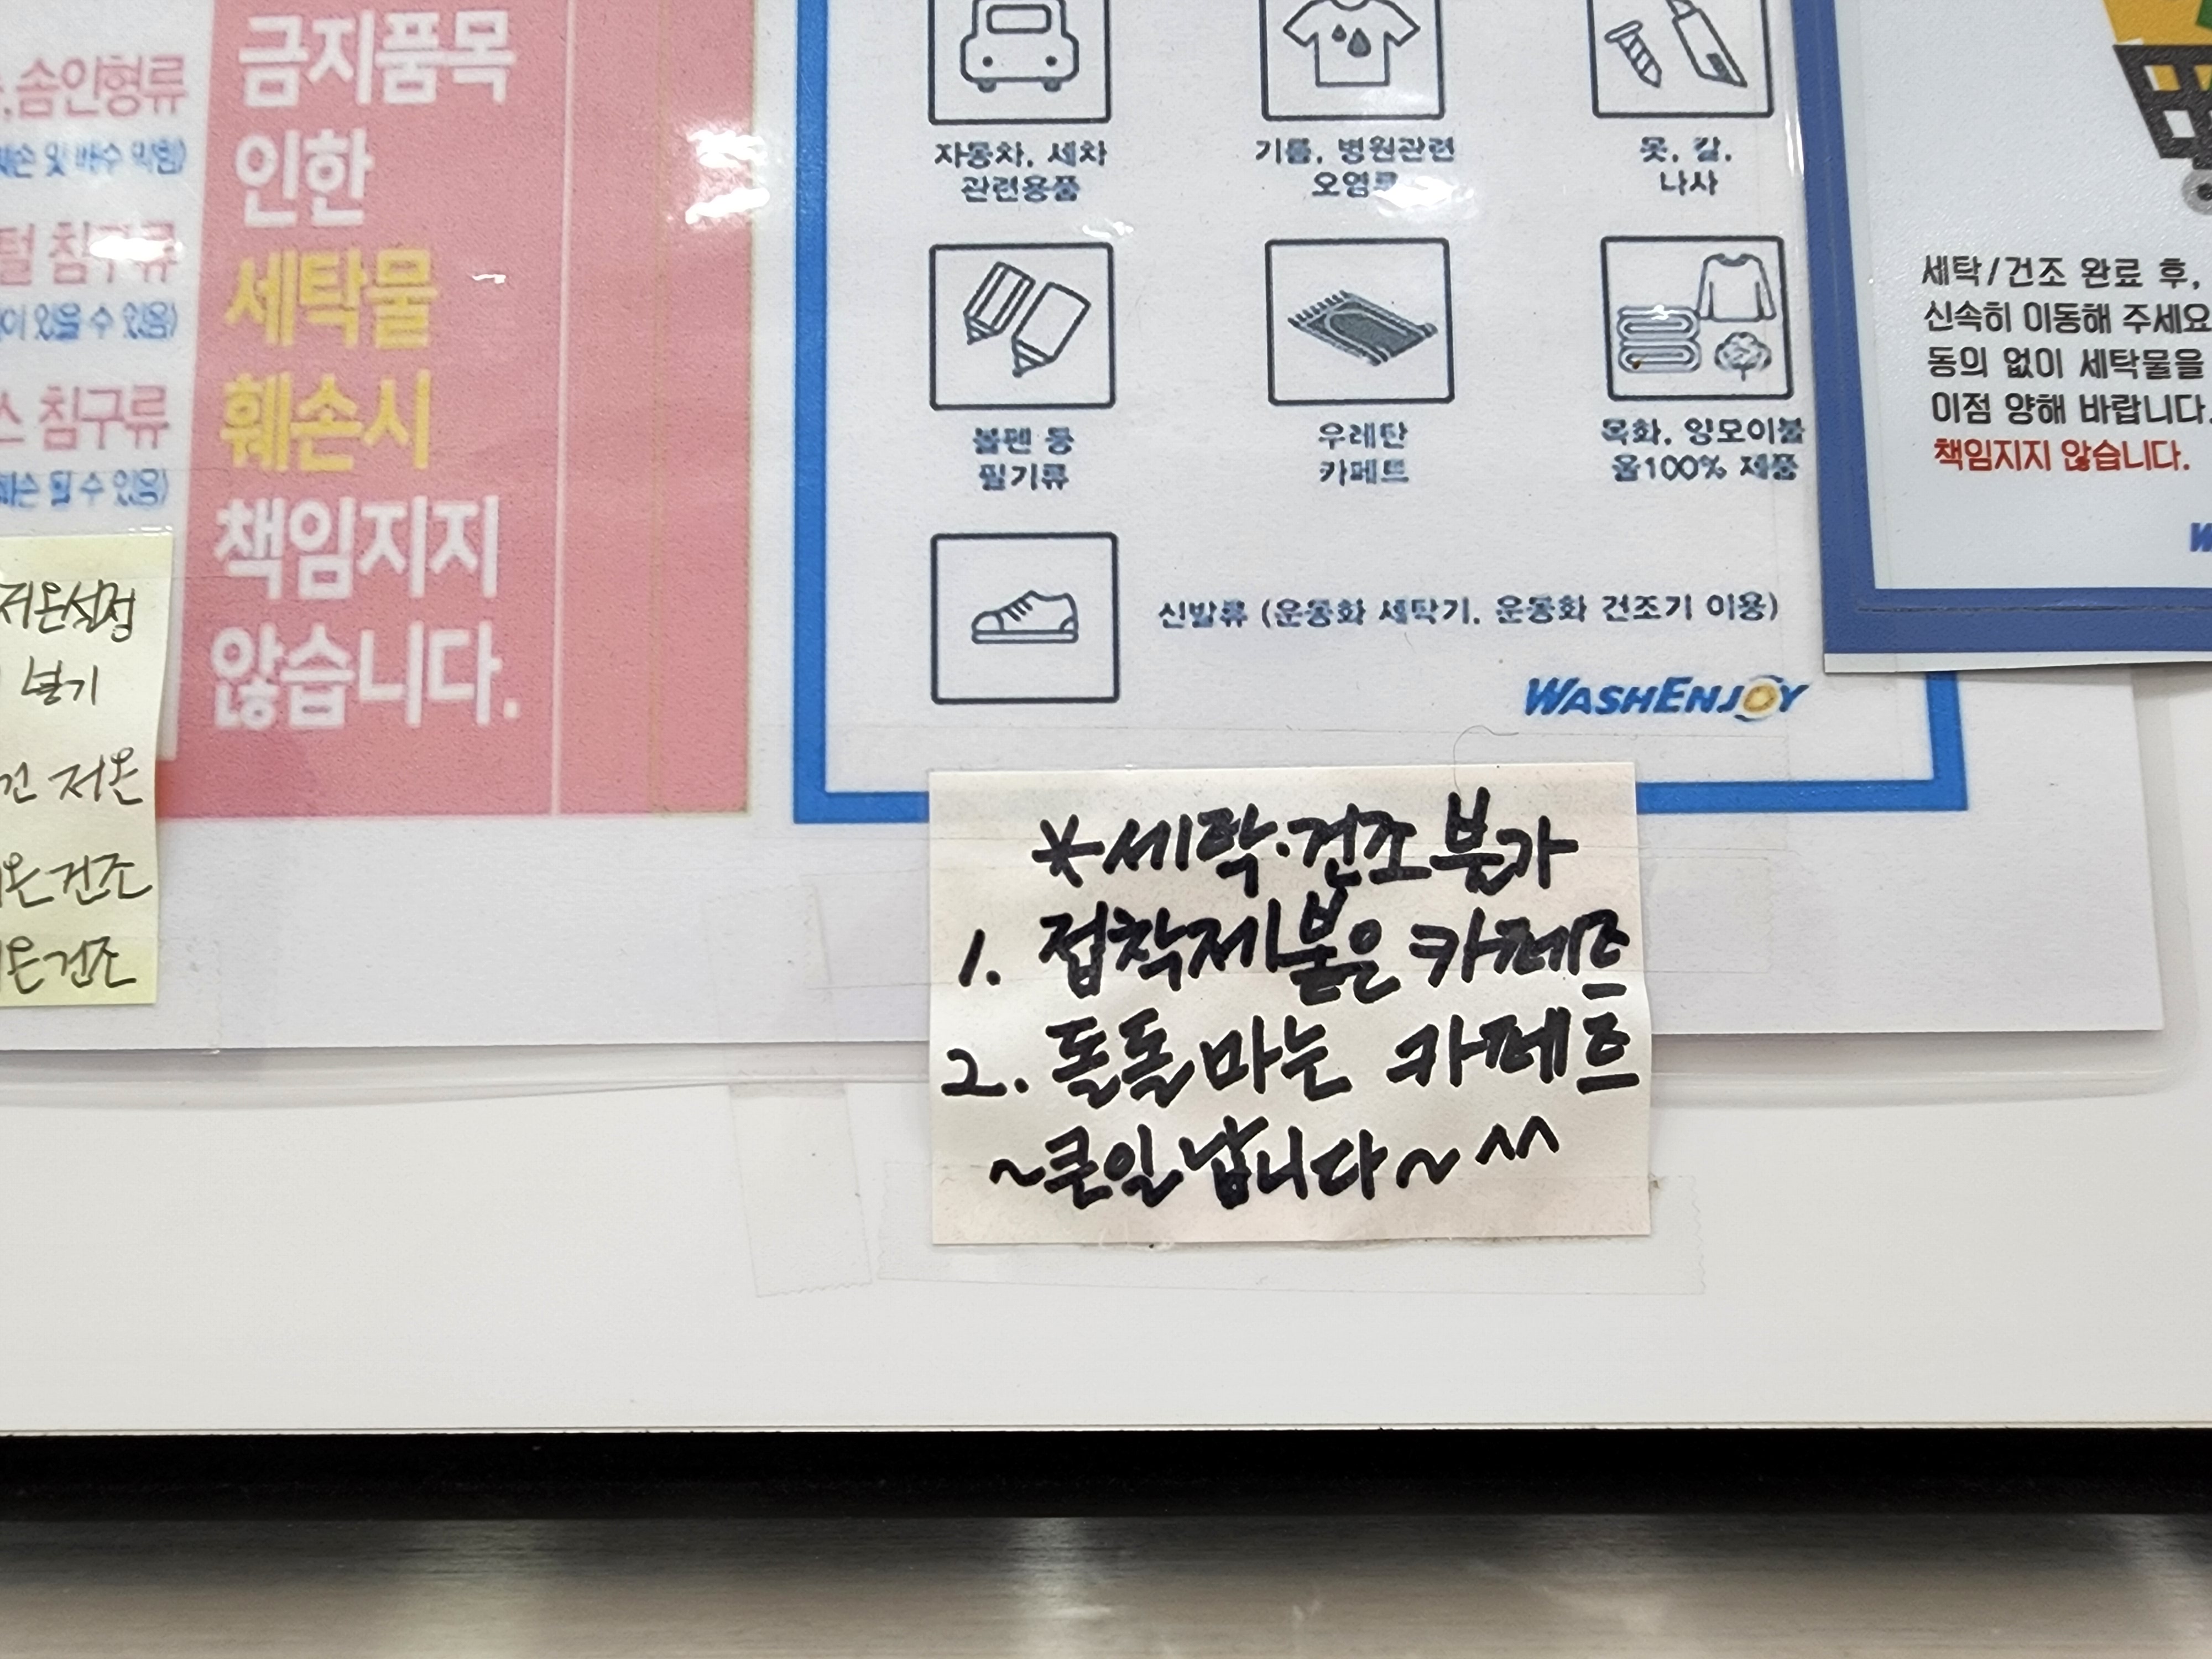 솜인형류
털 침구류
이 있을 수 있음)
스 침구류
훼손 될 수 있음)
저온설정
널기
건 저온
온건조
온건조
금지품목
인한
세탁물
훼손시
책임지지
않습니다.
자동차, 세차
관련용품
기름, 병원관련
오염류
못, 칼,
나사
볼펜 등
필기류
우레탄
카페트
목화, 양모이불
울100% 제품
신발류 (운동화 세탁기, 운동화 건조기 이용)
WASHENJOY
*세탁·건조 불가
1. 접착제 붙은 카페트
2. 돌돌 마는 카페트
~큰일 납니다~^^
세탁/건조 완료 후,
신속히 이동해 주세요
동의 없이 세탁물을
이점 양해 바랍니다.
책임지지 않습니다.